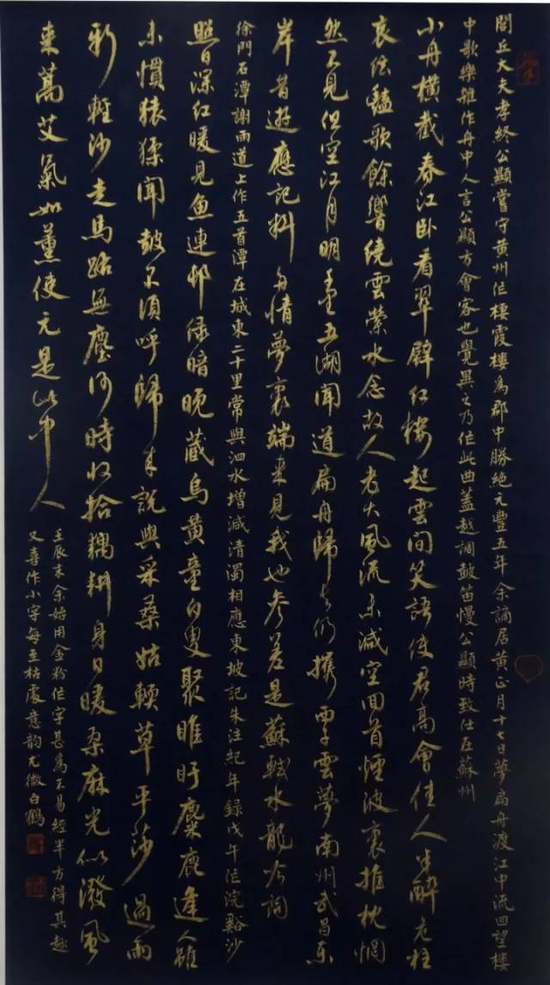 閭丘大夫孝終公顯嘗守黃州作棲霞樓為郡中勝絕元豐五年余謫居黃正月十七日夢扁舟渡江中流回望樓
中歌樂雜作舟中人言公顯方會客也覺異之乃作此曲蓋越調鼓笛慢公顯時致仕在蘇州
小舟橫截春江臥看翠壁紅樓起雲間笑語使君高會佳人半醉危柱
哀弦豔歌餘響繞雲縈水念故人老大風流未減空回首煙波裏推枕惘
然不見但空江月明千里五湖聞道扁舟歸去仍攜西子雲夢南州武昌東
岸昔遊應記料多情夢裏端來見我也參差是蘇軾水龍吟詞
徐門石潭謝雨道上作五首潭在城東二十里常與泗水增減清濁相應東坡記朱注紀年錄戊午作浣谿沙
照日深紅暖見魚連邨綠暗晚藏烏黃童白叟聚睢盱麋鹿逢人雖
未慣猿猱聞鼓不須呼歸來說與采桑姑輭草平莎過雨
新輕沙走馬路無塵何時收拾耦耕身日暖桑麻光似潑風
來蒿艾氣如薰使元是此中人
壬辰末余始用金粉作字甚為不易經半方得其趣
又喜作小字每至枯處意韻尤微白鶴